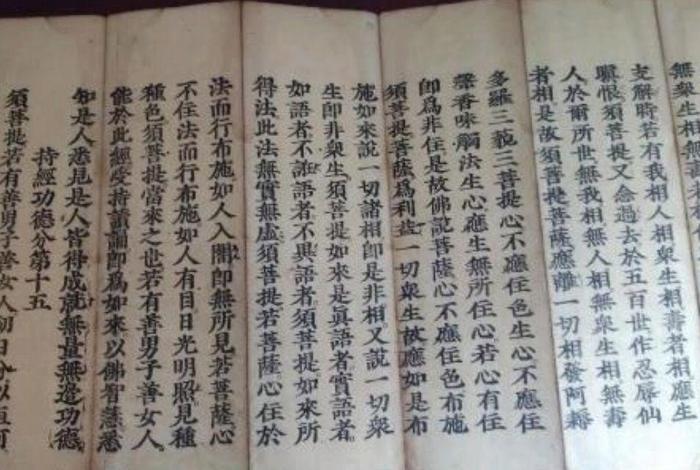 無衆生相
支解時若有我相人相衆生相壽者相應生
嗔恨須菩提又念過去於五百世作忍辱仙
人於爾所世無我相無人相無衆生相無壽
者相是故須菩提菩薩應離一切相發阿耨
多羅三藐三菩提心不應住色生心不應住
聲香味觸法生心應生無所住心若心有住
卽爲非住是故佛說菩薩心不應住色布施
須菩提菩薩爲利益一切衆生故應如是布
施如來說一切諸相卽是非相又說一切衆
生卽非衆生須菩提如來是眞語者實語者
如語者不誑語者不異語者須菩提如來所
得法此法無實無虛須菩提若菩薩心住於
法而行布施如人入闇卽無所見若菩薩心
不住法而行布施如人有目日光明照見種
種色須菩提當來之世若有善男子善女人
能於此經受持讀誦卽爲如來以佛智慧悉
知是人悉見是人皆得成就無量無邊功德
持經功德分第十五
須菩提若有善男子善女人初日分以恒河